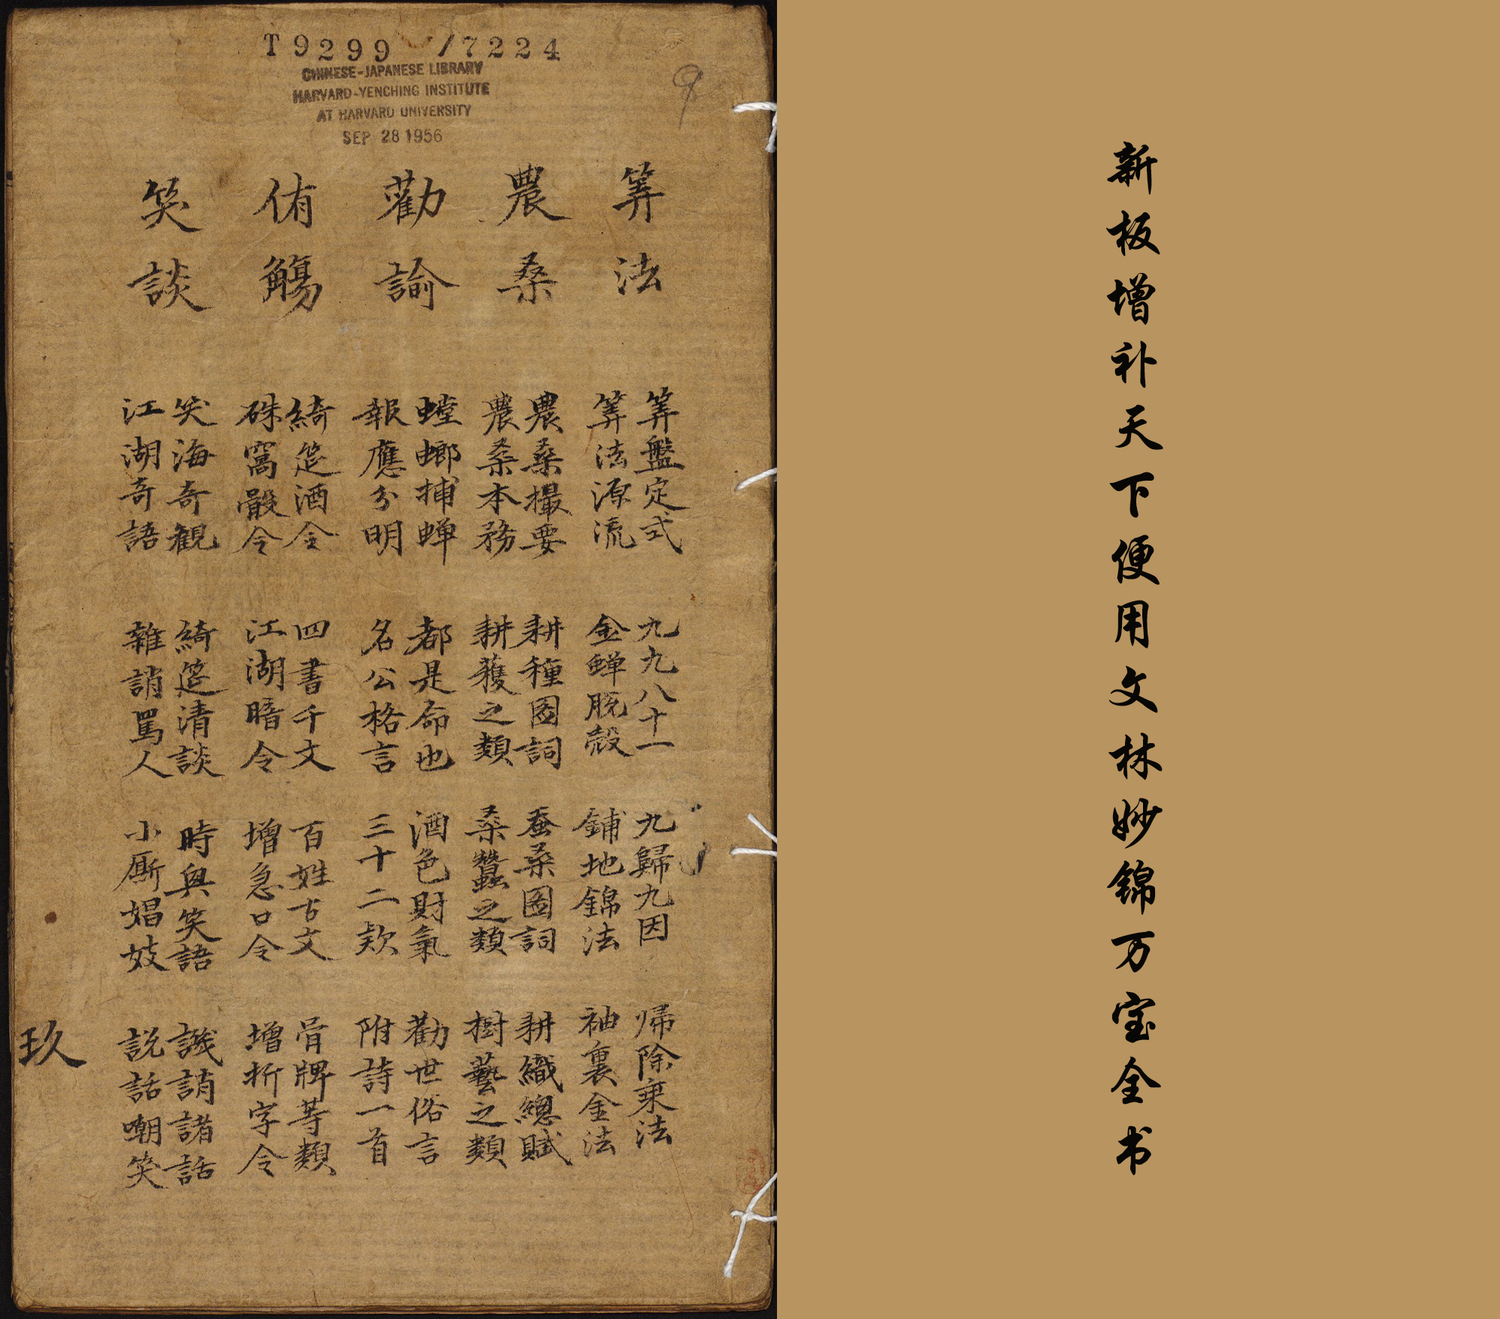 T9299 /7224
CHINESE-JAPANESE LIBRARY
HARVARD-YENCHING INSTITUTE
AT HARVARD UNIVERSITY
SEP 28 1956
9
算法
算盤定式 九九八十一 九歸九因 帰除乗法
算法源流 金蝉脱殻 鋪地錦法 袖裏金法
農桑
農桑撮要 耕種圖詞 蚕桑圖詞 耕織總賦
農桑本務 耕穫之類 桑蠶之類 樹藝之類
勸諭
螳螂捕蝉 都是命也 酒色財氣 勸世俗言
報應分明 名公格言 三十二欵 附詩一首
侑觴
綺筵酒令 四書千文 百姓古文 骨牌等類
硃窩骰令 江湖暗令 增急口令 增折字令
笑談
笑海奇観 綺筵清談 時興笑語 譏誚諸話
江湖奇語 雜誚罵人 小厮娼妓 説話嘲笑
玖
新板增补天下便用文林妙錦万宝全书